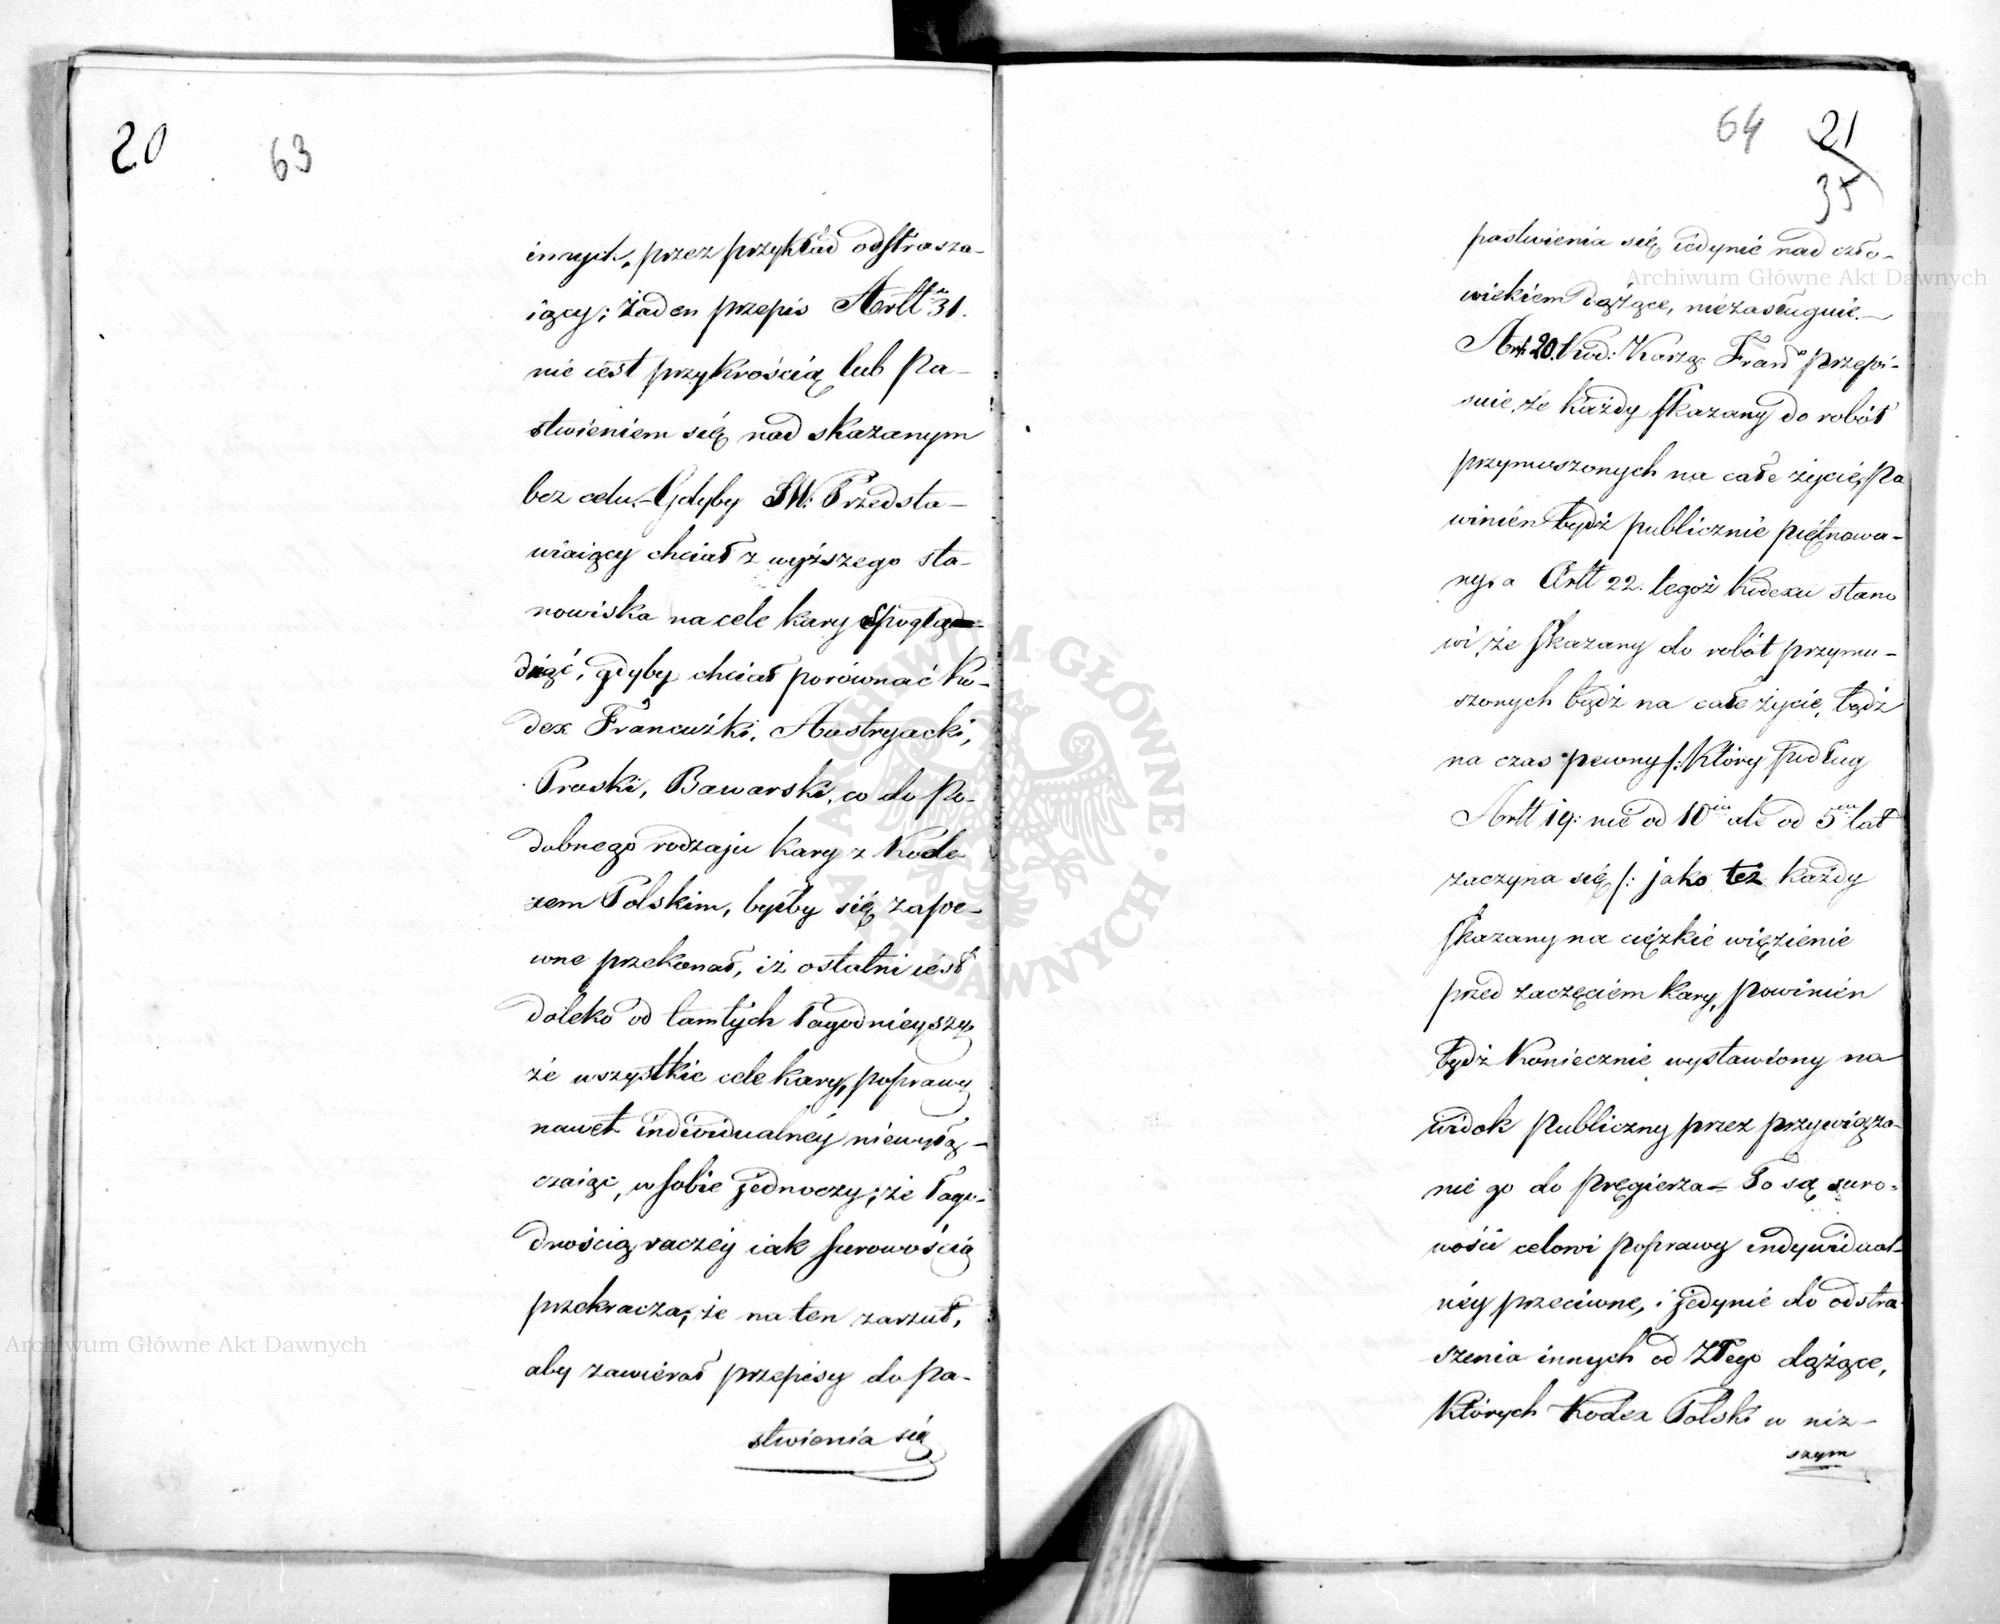 20
63
innych, przez przykład odstrasza-
iący; żaden przepis Artt 31.
nie iest przykrością lub Pa-
stwieniem się nad skazanym
bez celu. Gdyby JW: Przedsta-
wiaiący chciał z wyższego sta-
nowiska na cele kary spoglą-
dać, gdyby chciał porównać Ko-
dex Francuzki, Austryacki,
Pruski, Bawarski, co do Po-
dobnego rodzaju kary z Kode-
xem Polskim, byłby się zape-
wne przekonał, iż ostatni iest
daleko od tamtych łagodnieyszy
że wszystkie cele kary, poprawy
nawet individualnéy niewyłą-
czaiąc, w sobie jednoczy; że łago-
dnością raczéy iak surowością
przekracza; że na ten zarzut,
aby zawierał przepisy do Pa-
stwienia się
64 21
35
pastwienia się iedynie nad czło-
wiekiem dążące, niezasługuie.—
Art: 20. Kod: Karzą: Fran: przepi-
suie, że każdy skazany do robót
przymuszonych na całe życie, Po
winien bydź publicznie piętnowa-
ny, a Artt 22. tegoż Kodexu stano
wi, że skazany do robót przymu-
szonych bądź na całe życie, bądź
na czas pewny /: który podług
Artt 19: nie od 10iu ale od 5ciu lat
zaczyna się /: jako też każdy
skazany na ciężkie więzienie
przed zaczęciem kary, powinien
bydź koniecznie wystawiony na
widok Publiczny przez przywiąza-
nie go do pręgierza — To są suro-
wości celowi poprawy indywidual-
néy przeciwne, i jedynie do odstra-
szenia innych od Złego dążące,
których Kodex Polski w niż-
szym
Archiwum Główne Akt Dawnych
Archiwum Główne Akt Dawnych
ARCHIWUM GŁÓWNE AKT DAWNYCH